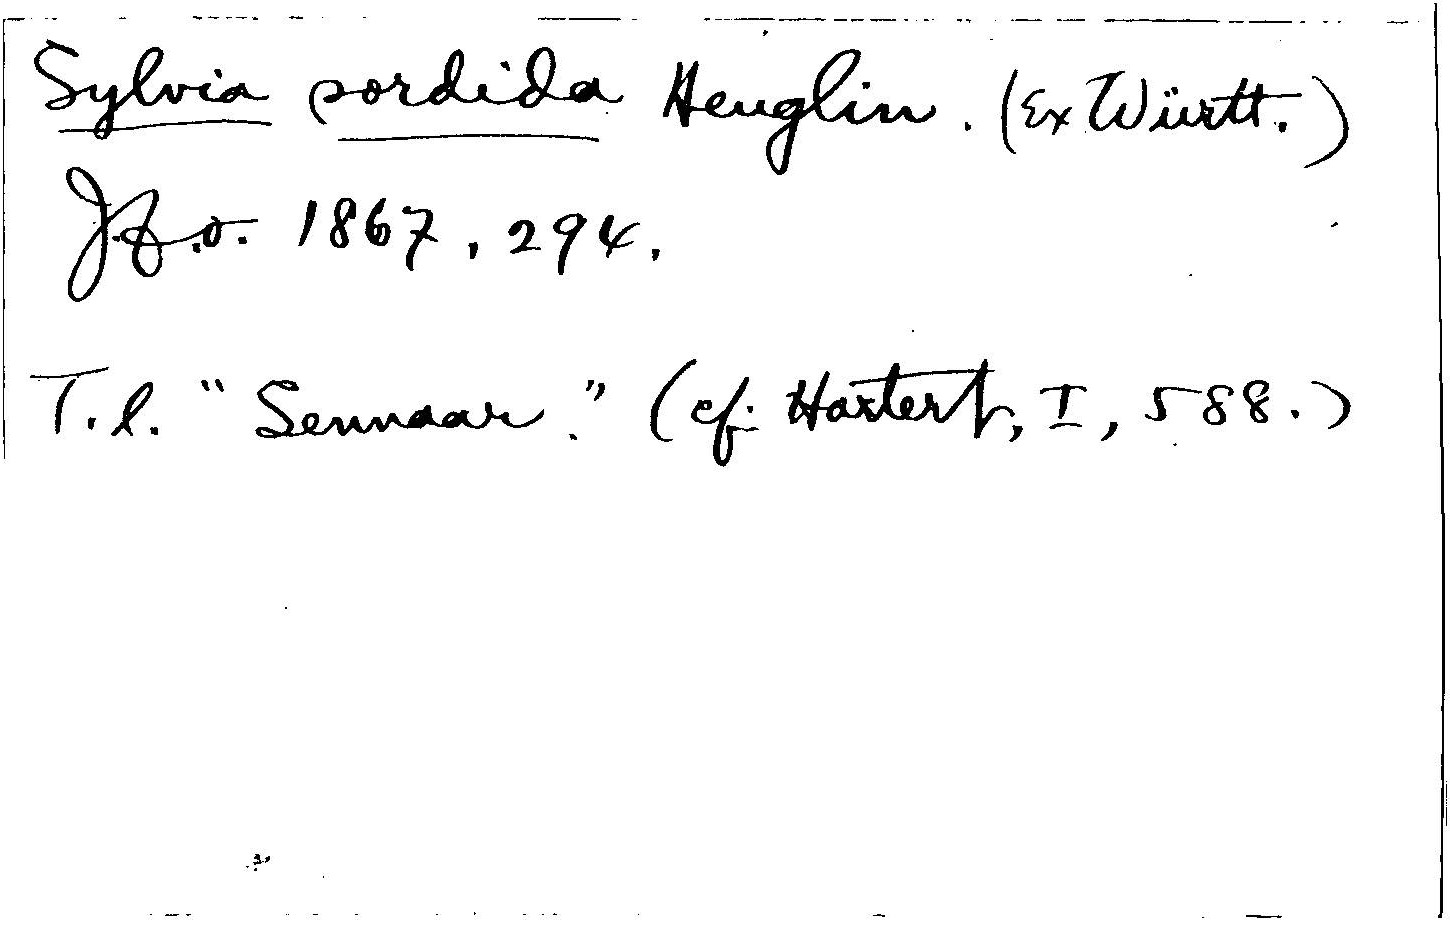 Sylvia sordida Heuglin. (Ex Württ.)
J.f.o. 1867, 294.
T.l. "Sennaar." (cf. Hartert, I, 588.)